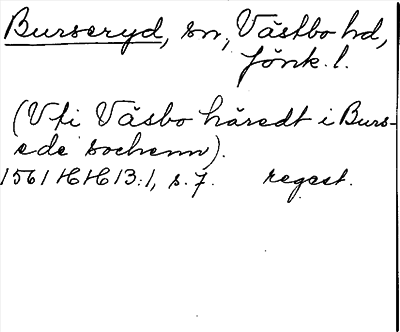 Burseryd, sn, Västbo hd,
Jönk. l.
(V fi Väsbo häredt i Burs-
ede sochenn).
1561 HH 13:1, s. 7. regest.